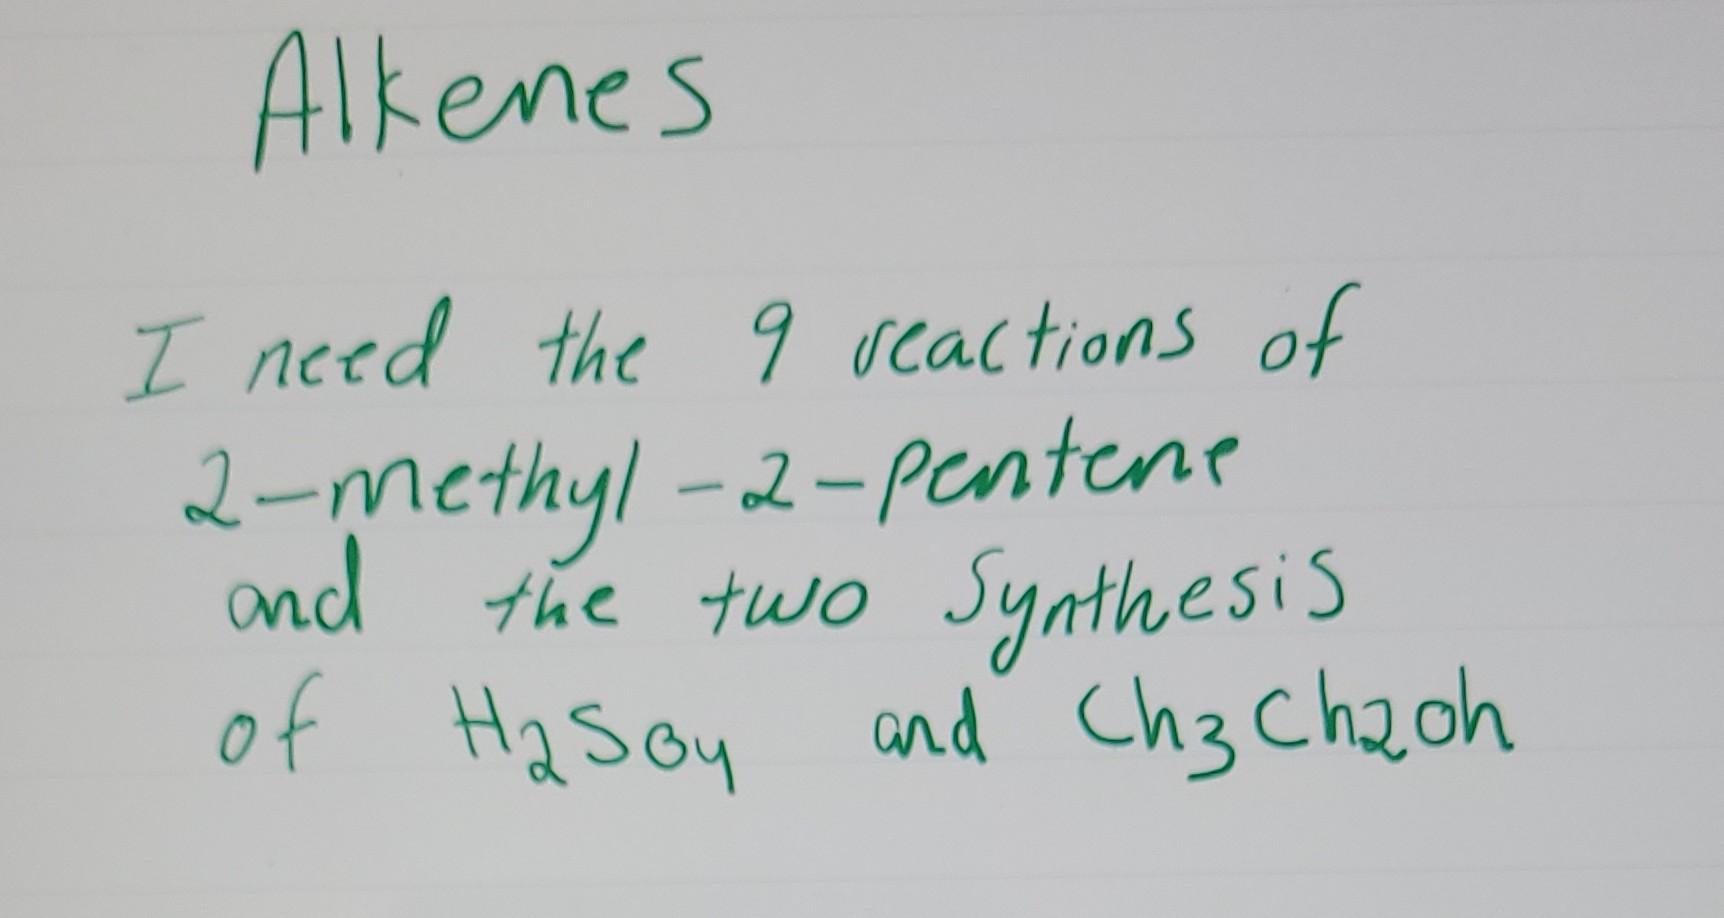 Alkenes
I need the 9 reactions of
2-methyl-2-pentene
and the two Synthesis
of H2SO4 and Ch3Ch2oh